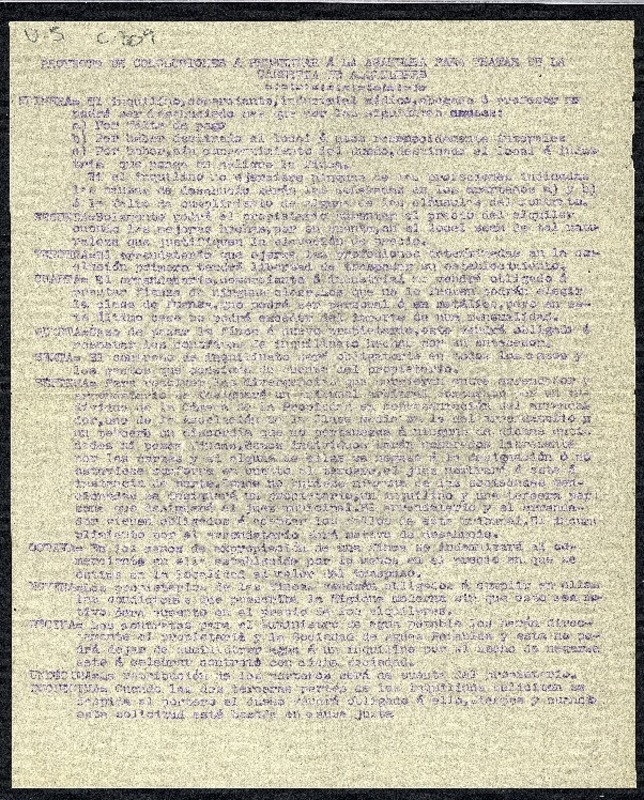 V.S C-309
PROYECTO DE CONCLUSIONES Á PRESENTAR Á LA ASAMBLEA PARA TRATAR DE LA
CUESTIÓN DE ALQUILERES
PRIMERA= El inquilino, comerciante, industrial médico, abogado ó profesor no
podrá ser desahuciado mas que por las siguientes causas:
a) Por falta de pago
b) Por haber destinado el local á usos
c) Por haber, sin consentimiento del dueño, destinado el local á indus-
tria que ponga en peligro la finca.
Si el inquilino no ejerciere ninguna de las profesiones indicadas
las causas de desahucio serán las señaladas en los apartados a) y b)
ó la falta de cumplimiento de alguna de las cláusulas del contrato.
SEGUNDA= Solamente podrá el propietario aumentar el precio del alquiler
cuando las mejoras hechas, por su cuenta, en el local sean de tal natu-
raleza que justifiquen la elevación de precio.
TERCERA= El arrendatario que ejerza las profesiones determinadas en la con-
clusión primera tendrá libertad de traspasar su establecimiento.
CUARTA= El arrendatario, comerciante é industrial, no vendrá obligado á
prestar fianza de ninguna clase. Los que no lo fuesen podrán elegir
la clase de fianza, que podrá ser personal ó en metálico, pero en es-
te último caso no podrá exceder del importe de una mensualidad.
QUINTA= Caso de pasar la finca á nuevo propietario, este vendrá obligado á
respetar los contratos de inquilinato hechos por su antecesor.
SEXTA= El contrato de inquilinato será obligatorio en todos los casos y
los gastos que ocasione de cuenta del propietario.
SEPTIMA= Para resolver las divergencias que surgieren entre arrendador y
arrendatario se designará un tribunal arbitral compuesto por un in-
dividuo de la Cámara de la Propiedad en representación del arrenda-
dor, uno de la Asociación de la Clase media en la del arrendatario y
un tercero en discordia que no pertenezca á ninguna de dichas entida-
des ni posea fincas, estos individuos serán nombrados libremente
por las partes y si alguna de ellas se negase á la designación ó no
estuviese conforme en cuanto al tercero, el juez nombrará á este á
instancia de parte. Donde no hubiese ninguna de las sociedades men-
cionadas se designará un propietario, un inquilino y una tercera per-
sona que designará el juez municipal. El arrendatario y el arrenda-
dor vienen obligados á aceptar los fallos de este tribunal. El incum-
plimiento por el arrendatario será motivo de desahucio.
OCTAVA= En los casos de expropiación de una finca se indemnizará al co-
merciante en ella establecido por lo menos en el precio en que se
cotice en la localidad el valor del traspaso.
NOVENA= Los propietarios de las fincas vendrán obligados á cumplir en ellas
las condiciones que prescribe la Higiene moderna sin que esto sea mo-
tivo para aumento en el precio de los alquileres.
DECIMA= Los contratos para el suministro de agua potable los harán direc-
tamente el propietario y la Sociedad de Aguas Potables y esta no po-
drá dejar de suministrar agua á un inquilino por el hecho de negarse
este á celebrar contrato con dicha Sociedad.
UNDÉCIMA= La retribución de los porteros será de cuenta del propietario.
DUODÉCIMA= Cuando las dos terceras partes de los inquilinos soliciten se
despida al portero el dueño vendrá obligado á ello, siempre y cuando
esta solicitud esté basada en causa justa